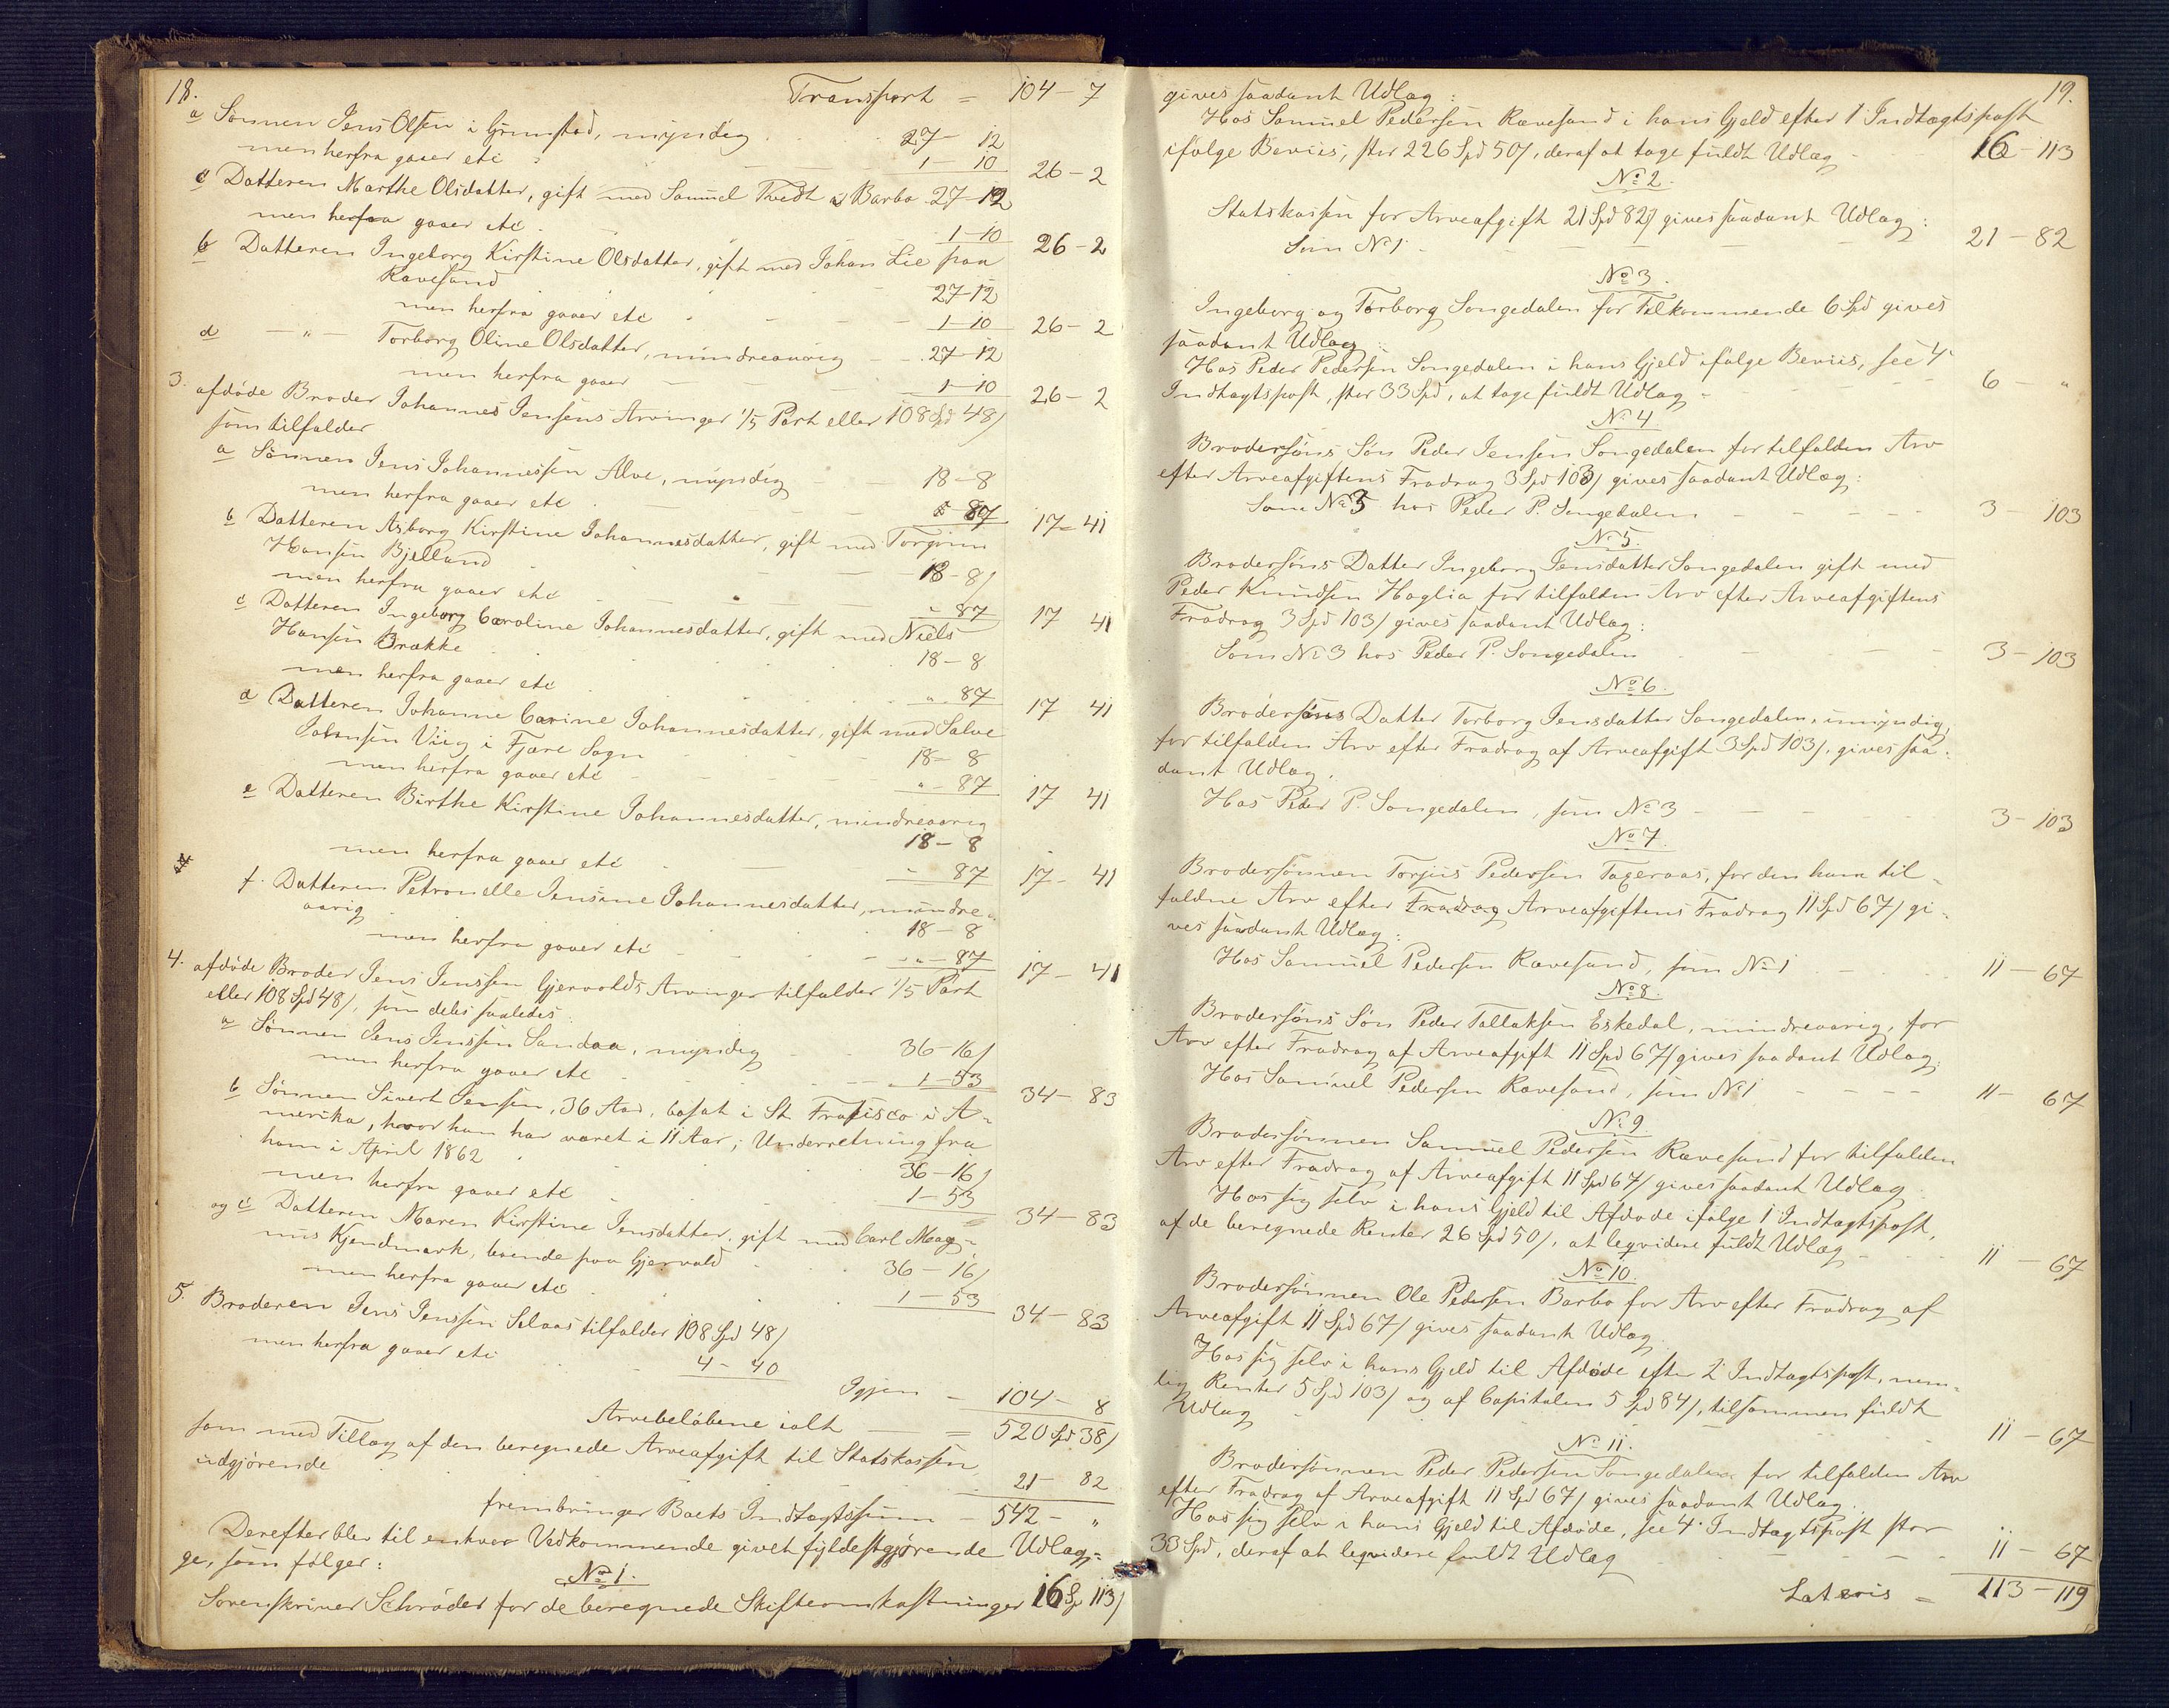 18.
Transport = 104 - 7
a Sønnen Jens Olsen i Grimstad, myndig 27 - 12
men herfra gaaer etc 1 - 10 26 - 2
c Datteren Marthe Olsdatter, gift med Samuel Tvedt i Barbo 27 - 12
men herfra gaaer etc 1 - 10 26 - 2
b Datteren Ingeborg Kirstine Olsdatter, gift med Johan Lie paa
Ravesand 27 - 12
men herfra gaaer etc 1 - 10 26 - 2
d - " - Torborg Oline Olsdatter, mindreaarig 27 - 12
men herfra gaaer 1 - 10 26 - 2
3. afdøde Broder Johannes Jensens Arvinger 1/5 Part eller 108 Spd 48/
som tilfalder
a Sønnen Jens Johannessen Alve, myndig 18 - 8
men herfra gaaer etc 87 17 - 41
b Datteren Asborg Kirstine Johannesdatter, gift med Torgrim
Hansen Bjelland 18 - 8/
men herfra gaaer etc " 87 17 41
c Datteren Ingeborg Caroline Johannesdatter, gift med Niels
Hansen Brække 18 - 8
men herfra gaaer etc " 87 17 41
d Datteren Johanne Carine Johannesdatter, gift med Salve
Johnsen Viig i Fjære Sogn 18 - 8
men herfra gaaer etc " - 87 17 41
e Datteren Birthe Kirstine Johannesdatter, mindreaarig
18 - 8
men herfra gaaer etc " 87 17 - 41
f. Datteren Petronelle Jensine Johannesdatter, mindre-
aarig 18 - 8
men herfra gaaer etc " - 87 17 - 41
4. afdøde Broder Jens Jenssen Gjervolds Arvinger tilfalder 1/5 Part
eller 108 Spd 48/, som deles saaledes:
a Sønnen Jens Jenssen Sandaa, myndig 36 - 16/
men herfra gaaer etc 1 - 53 34 - 83
b Sønnen Sivert Jensen, 36 Aar, bosat i St. Fransisco i A-
merika, hvor han har været i 11 Aar; Underretning fra
ham i April 1862 36 - 16/
men herfra gaaer etc 1 - 53 34 - 83
og c Datteren Maren Kirstine Jensdatter, gift med Carl Mag-
nus Kjendmark, boende paa Gjervold 36 - 16/
men herfra gaaer etc 1 - 53 34 - 83
5. Broderen Jens Jenssen Selaas tilfalder 108 Spd 48/
men herfra gaaer etc 4 - 40
Igjen - 104 - 8
Arvebeløbene ialt = 520 Spd 38/
som med Tillæg af den beregnede Arveafgift til Statskassen
udgjørende 21 - 82
frembringer Boets Indtægtssum - 542 - "
Derefter blev til enhver Vedkommende givet fyldestgjørende Udlæg-
ge, som følger:
No 1.
Sorenskriver Schrøder for de beregnede Skifteomkostninger 16 Sp 113/
19.
gives saadant Udlæg:
Hos Samuel Pedersen Ravesand i hans Gjeld efter 1' Indtægtspost
ifølge Beviis, stor 226 Spd 50/, deraf at tage fuldt Udlæg - 16 - 113
No 2.
Statskassen for Arveafgift 21 Spd 82/ gives saadant Udlæg:
Som No 1 - 21 - 82
No 3.
Ingeborg og Torborg Songedalen for Tilkommende 6 Spd gives
saadant Udlæg:
Hos Peder Pedersen Songedalen i hans Gjeld ifølge Beviis, see 4'
Indtægtspost, stor 33 Spd, at tage fuldt Udlæg - 6 - "
No 4
Brodersøns Søn Peder Jensen Songedalen for tilfalden Arv
efter Arveafgiftens Fradrag 3 Spd 103/ gives saadant Udlæg:
Som No 3 hos Peder P. Songedalen - 3 - 103
No 5.
Brodersøns Datter Ingeborg Jensdatter Songedalen gift med
Peder Knudsen Haglia for tilfalden Arv efter Arveafgiftens
Fradrag 3 Spd 103/ gives saadant Udlæg:
Som No 3 hos Peder P. Songedalen 3 - 103
No 6.
Brodersøns Datter Torborg Jensdatter Songedalen, umyndig,
for tilfalden Arv efter Fradrag af Arveafgift 3 Spd 103/, gives saa-
dant Udlæg.
Hos Peder P. Songedalen, som No 3 - 3 - 103
No 7.
Brodersønnen Torjus Pedersen Taxeraas, for den ham til-
faldne Arv efter Fradrag Arveafgiftens Fradrag 11 Spd 67/ gi-
ves saadant Udlæg:
Hos Samuel Pedersen Ravesand, som No 1 11 - 67
No 8.
Brodersøns Søn Peder Tallaksen Eskedal, mindreaarig, for
Arv efter Fradrag af Arveafgift 11 Spd 67/ gives saadant Udlæg:
Hos Samuel Pedersen Ravesand, som No 1 - 11 - 67
No 9
Brodersønnen Samuel Pedersen Ravesand for tilfalden
Arv efter Fradrag af Arveafgift 11 Spd 67/ gives saadant Udlæg
Hos sig selv i hans Gjeld til Afdøde ifølge 1' Indtægtspost,
af de beregnede Renter 26 Spd 50/, at leqvidere fuldt Udlæg - 11 - 67
No 10.
Brodersønnen Ole Pedersen Barbo for Arv efter Fradrag af
Arveafgift 11 Spd 67/ gives saadant Udlæg.
Hos sig selv i hans Gjeld til Afdøde efter 2' Indtægtspost, nem-
lig Renter 5 Spd 103/ og af Capitalen 5 Spd 84/, tilsammen fuldt
Udlæg 11 - 67
No 11.
Brodersønnen Peder Pedersen Songedalen for tilfalden Arv
efter Fradrag af Arveafgift 11 Spd 67/ gives saadant Udlæg.
Hos sig selv i hans Gjeld til Afdøde, see 4' Indtægtspost stor
33 Spd, deraf at leqvidere fuldt Udlæg 11 - 67
Lateris = 113 - 119